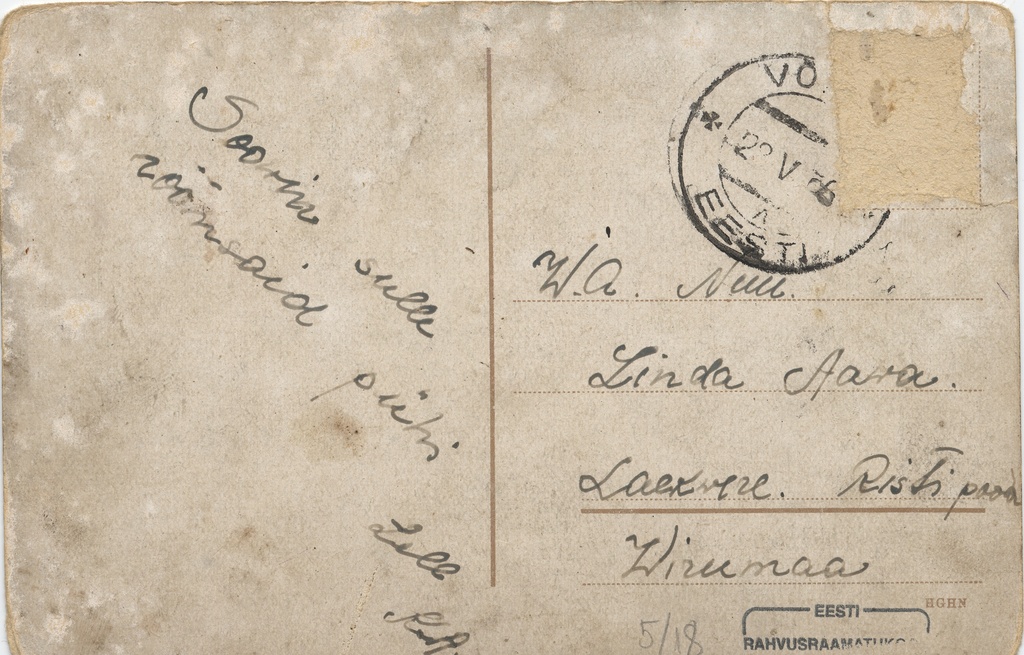 Soovin sulle
röömsaid pühi
Lelle
VÕ
2? V 36
EESTI
W.A. Neiu.
Linda Aava.
Laekwere. Risti
Wirumaa
HGHN
5/18
EESTI
RAHVUSRAAMATUKOG